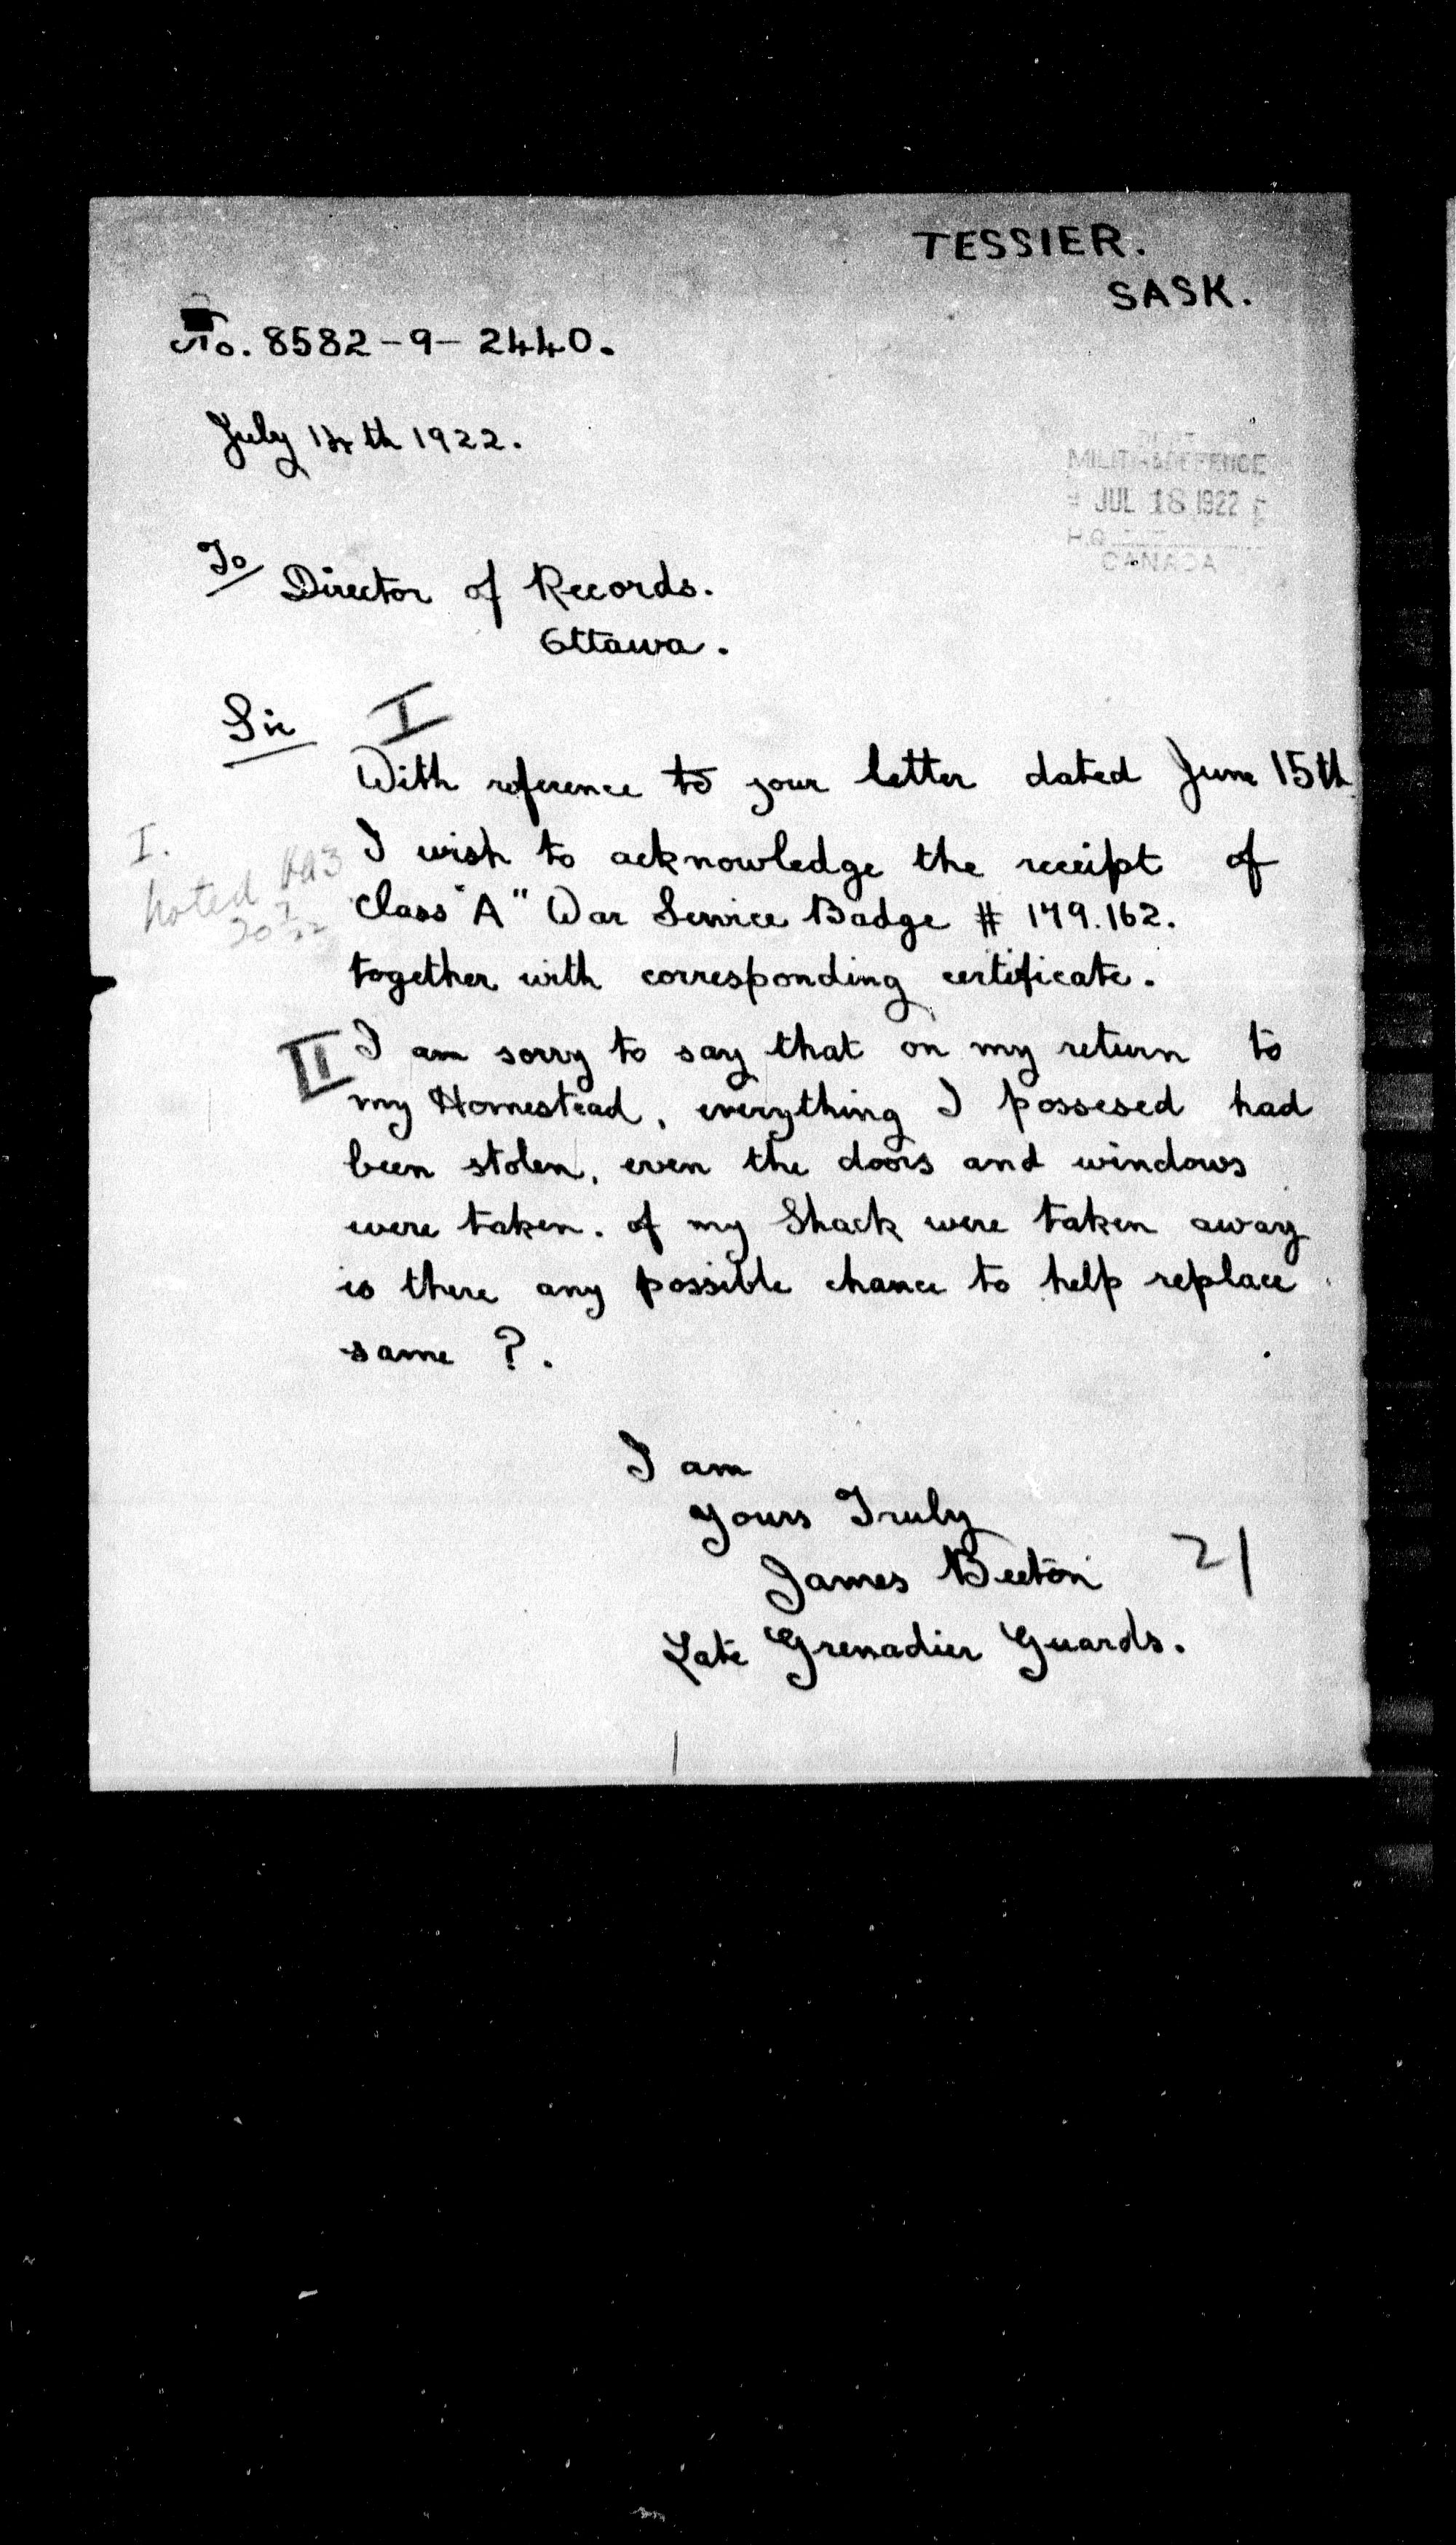 TESSIER.
SASK.
No. 8582-9-2440.
July 14th 1922.
MILITIA & DEFENCE
JUL 18 1922
H.Q.
CANADA
To
Director of Records.
Ottawa.
Sir I
With reference to your letter dated June 15th
I.
I wish to acknowledge the receipt of
noted
Class "A" War Service Badge # 149.162.
together with corresponding certificate.
II I am sorry to say that on my return to
my Homestead, everything I possesed had
been stolen, even the doors and windows
were taken. of my Shack were taken away
is there any possible chance to help replace
same ?.
I am
Yours Truly
James Beeton 21
Late Grenadier Guards.